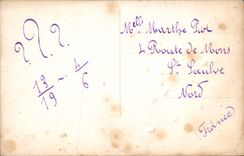 ? ? ?
13/19 - 4/6
Melle Marthe Piot
4 Route de Mons
St Saulve
Nord
(France)